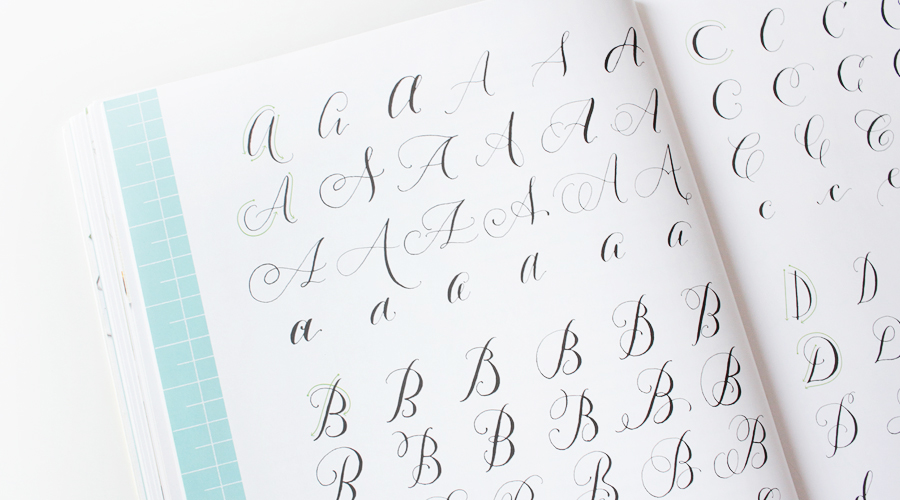 A A A A A A
A A A A A A
A A A A A A
a a a a a a
B B B B B B
B B B B B B
B B B
C C C C
C C C
C C C
c c c
D D
D D
D
d